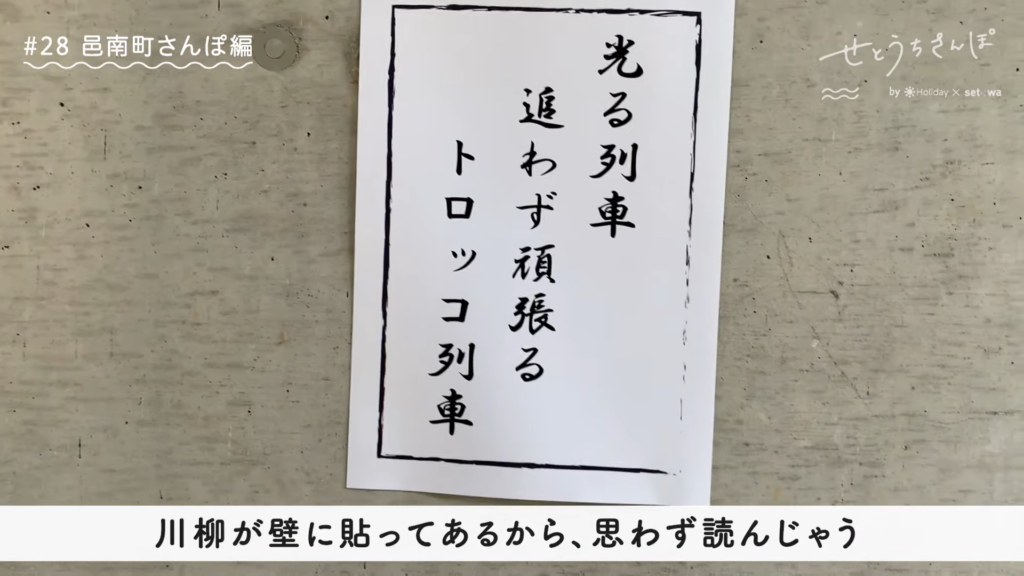 #28 邑南町さんぽ編
せとうちさんぽ
by Holiday × setowa
光る列車
追わず頑張る
トロッコ列車
川柳が壁に貼ってあるから、思わず読んじゃう